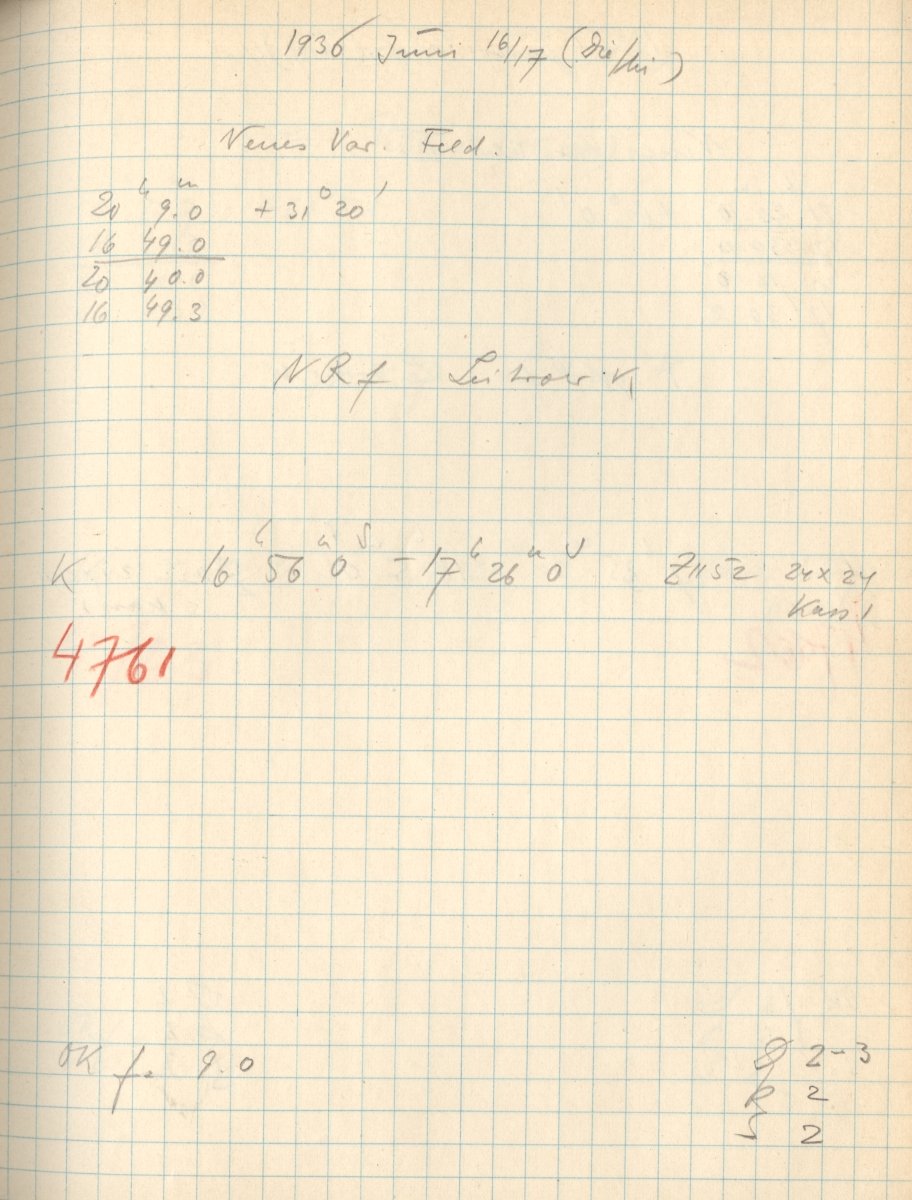 1936 Juni 16/17 (Die/Mi)
Neues Var. Feld.
20ʰ 9.ᵐ0 +31° 20'
16 49.0
20 40.0
16 49.3
NRf
K 16ʰ 56ᵐ 0ˢ – 17ʰ 26ᵐ 0ˢ Z1152 24x24
Kass 1
4761
OK f. 9.0
2–3
R 2
S 2